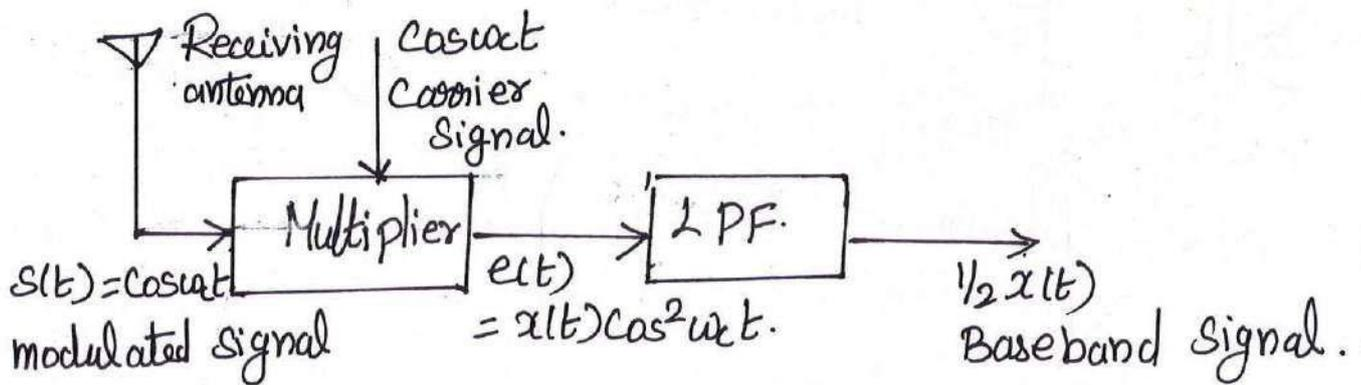 Receiving
antenna
Cosωct
Carrier
Signal.
Multiplier
LPF.
S(t)=Cosωct
modulated Signal
e(t)
= x(t)Cos²ωct.
1/2 x(t)
Baseband Signal.